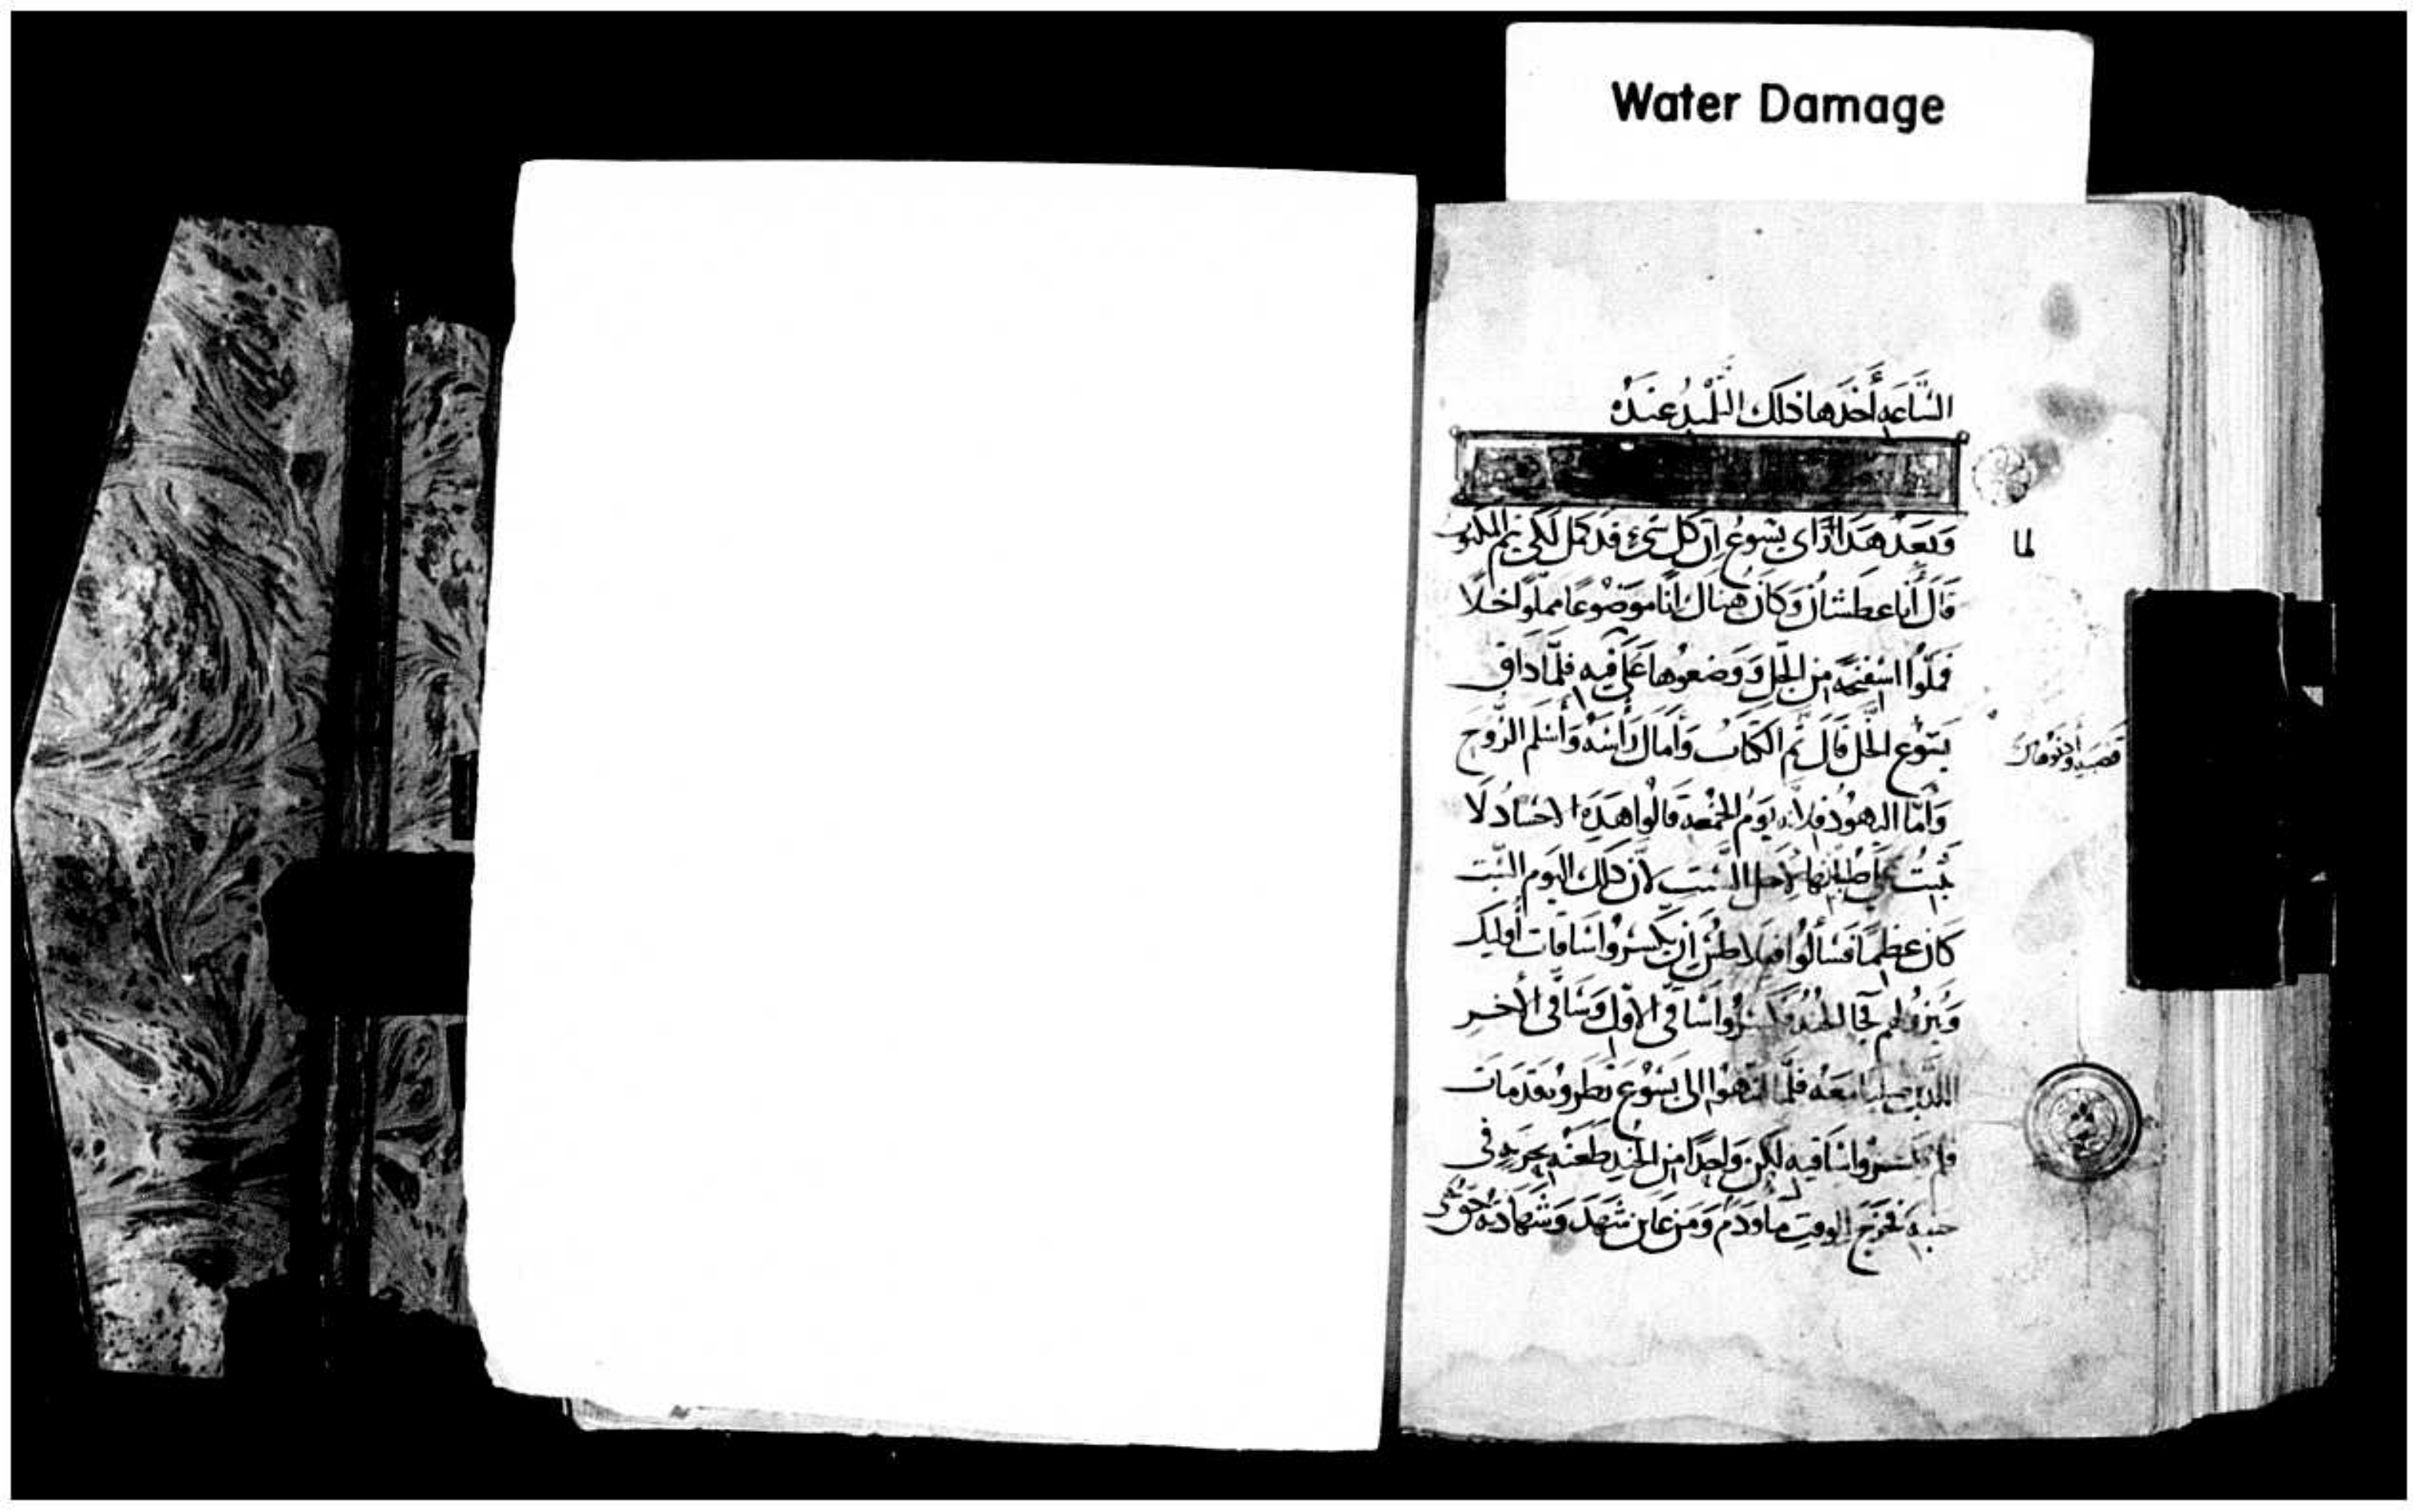 Water Damage
السَّاعَهِ أَخَذَها ذلك التلميذُ عندَهُ
وَبَعدَ هَذا رَأى يَسُوعُ اِن كلّ شيء قد كمل لكي يتم المكتوب
قالَ أنا عطشان وَكانَ هناكَ اناً موضوعاً مملوا خلا
فملّوا اسفنجه من الخل وَوَضعوها عَلى فيه فلمّا داق
يسوع الخل قالَ تم الكتاب وَأمال رَأسَهُ وَأسلم الرّوح
وَأمّا اليهود فلانه يوم الجمعه قالوا هَذه الاجسادُ لا
تبيت لاجل السبت لان ذلك اليوم السبت
كان عظيماً فسألوا فيلاطس اِن يكسروا ساقات أوليك
الجند فكسروا ساقى الاوّل وَسَاقى الأخر
اللذين صلبا مَعَهُ فلمّا انتهوا الى يسوع نظروه قد مَات
فلم يكسروا ساقيه لكن واحداً من الجند طعنه بحربه في
جنبه فخرج للوقت ما ودم وَمن عاين شهد وَشهادته حق
لما